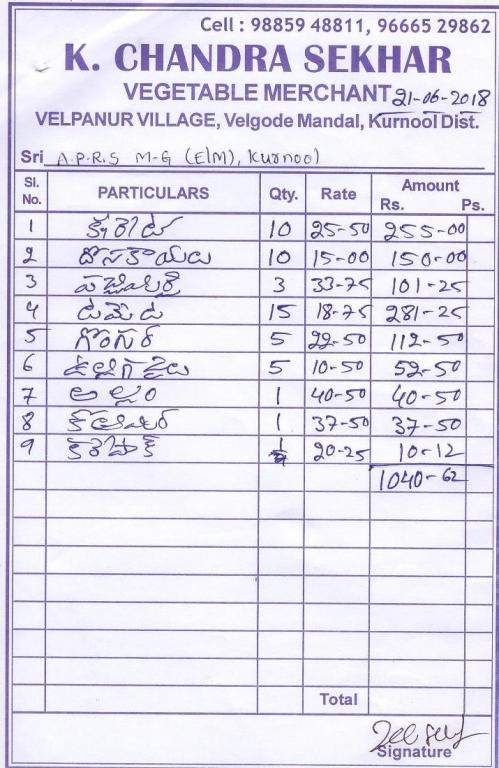 Cell : 98859 48811, 96665 29862
K. CHANDRA SEKHAR
VEGETABLE MERCHANT 21-06-2018
VELPANUR VILLAGE, Velgode Mandal, Kurnool Dist.
Sri A.P.R.S M-G (E/M), Kurnool
Sl. No. PARTICULARS Qty. Rate Amount Rs. Ps.
1 10 25-50 255-00
2 దోసకాయలు 10 15-00 150-00
3 3 33-75 101-25
4 టమోట 15 18-75 281-25
5 గోంగూర 5 22-50 112-50
6 5 10-50 52-50
7 అల్లం 1 40-50 40-50
8 1 37-50 37-50
9 20-25 10-12
1040-62
Total
Signature